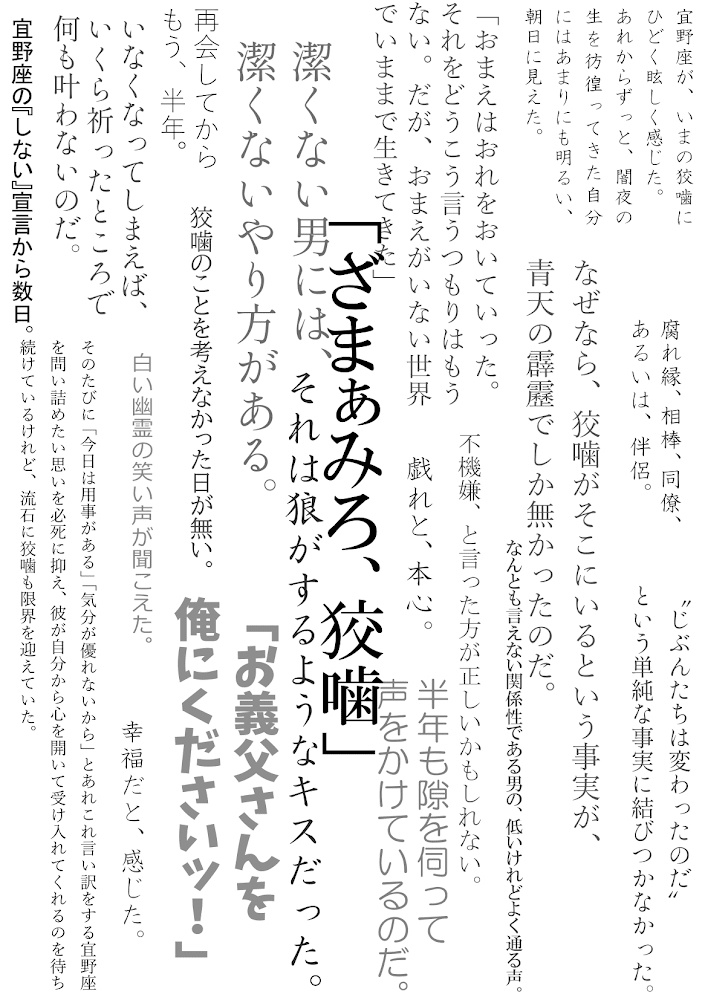 宜野座が、いまの狡噛に
ひどく眩しく感じた。
あれからずっと、闇夜の
生を彷徨ってきた自分
にはあまりにも明るい、
朝日に見えた。
「おまえはおれをおいていった。
それをどうこう言うつもりはもう
ない。だが、おまえがいない世界
でいままで生きてきた」
潔くない男には、
潔くないやり方がある。
再会してから
もう、半年。
いなくなってしまえば、
いくら祈ったところで
何も叶わないのだ。
宜野座の『しない』宣言から数日。
腐れ縁、相棒、同僚、
あるいは、伴侶。
なぜなら、狡噛がそこにいるという事実が、
青天の霹靂でしか無かったのだ。
「ざまぁみろ、狡噛」
狡噛のことを考えなかった日が無い。
“じぶんたちは変わったのだ”
という単純な事実に結びつかなかった。
なんとも言えない関係性である男の、低いけれどよく通る声。
不機嫌、と言った方が正しいかもしれない。
戯れと、本心。
半年も隙を伺って
声をかけているのだ。
それは狼がするようなキスだった。
「お義父さんを
俺にくださいッ！」
白い幽霊の笑い声が聞こえた。
幸福だと、感じた。
そのたびに「今日は用事がある」「気分が優れないから」とあれこれ言い訳をする宜野座
を問い詰めたい思いを必死に抑え、彼が自分から心を開いて受け入れてくれるのを待ち
続けているけれど、流石に狡噛も限界を迎えていた。